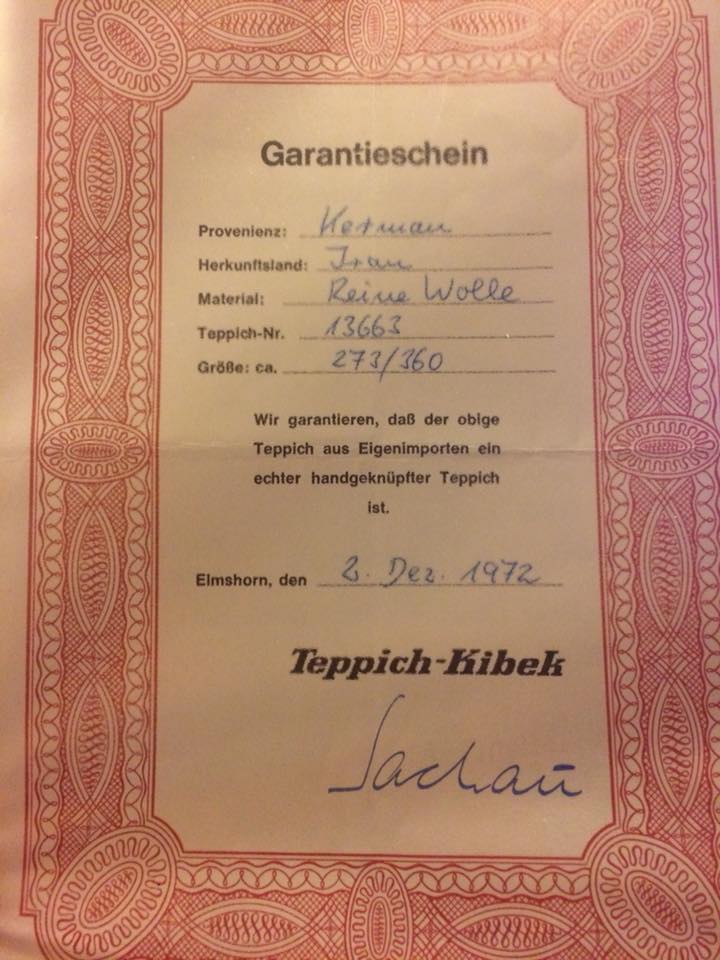 Garantieschein
Provenienz: Kerman
Herkunftsland: Iran
Material: Reine Wolle
Teppich-Nr. 13663
Größe: ca. 273/360
Wir garantieren, daß der obige
Teppich aus Eigenimporten ein
echter handgeknüpfter Teppich
ist.
Elmshorn, den 2. Dez. 1972
Teppich-Kibek
Sachau